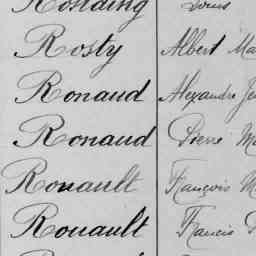 Rosty Albert
Ronaud Alexandre
Ronaud Pierre
Rouault François
Rouault Francis